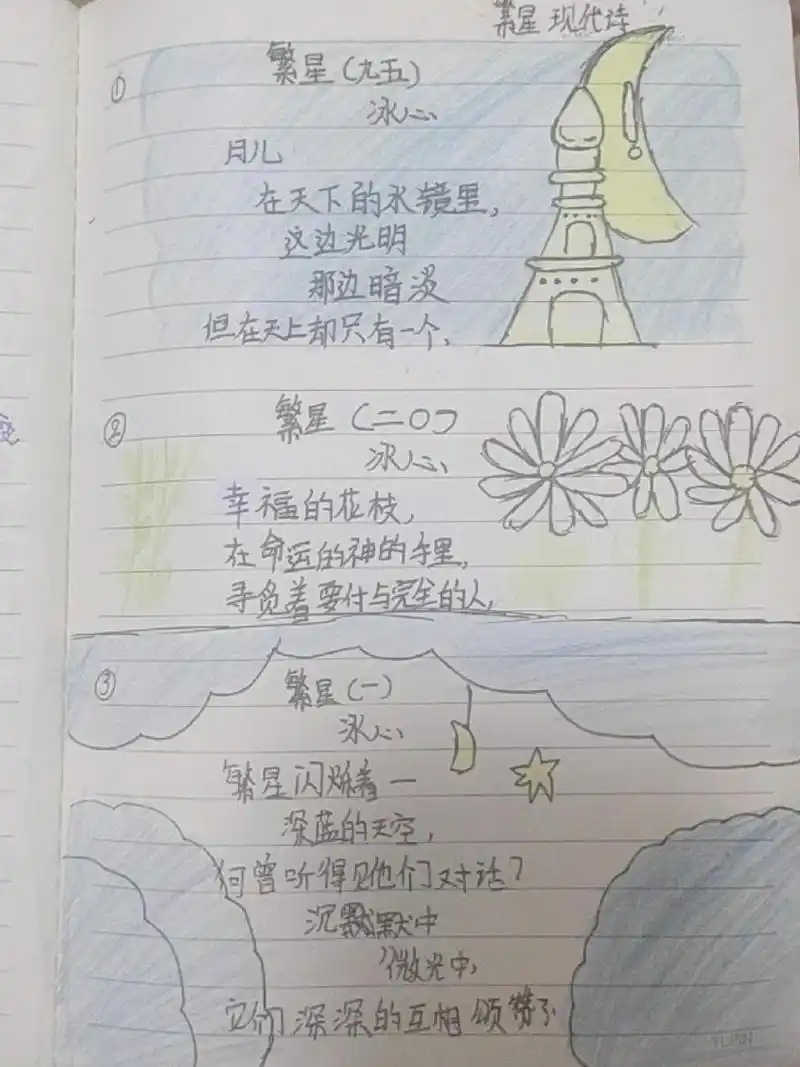 繁星 现代诗
①
繁星(九五)
冰心
月儿
在天下的水镜里,
这边光明
那边暗淡
但在天上却只有一个、
②
繁星(二〇)
冰心、
幸福的花枝,
在命运的神的手里,
寻觅着要付与完全的人,
③
繁星(一)
冰心
繁星闪烁着一
深蓝的天空,
何曾听得见他们对话?
沉默默中
微光中,
它们深深的互相颂赞了